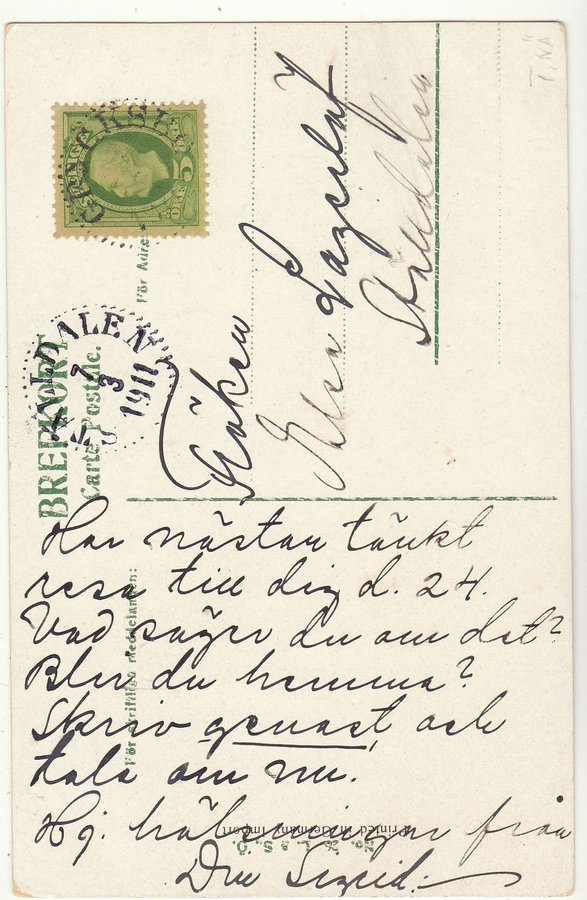 BREFKORT
Carte Postale.
För Adre
SVERIGE
5
ÖRE
STÄLLDALEN
7
3
1911
Fröken
Elsa Lagerlöf
Ställdalen
För skriftliga meddelanden:
Har nästan tänkt
resa till dig d. 24.
Vad säger du om det?
Blir du hemma?
Skriv genast och
tala om nu.
Hj. hälsningar från
Din Sigrid.
Printed in Germany Import